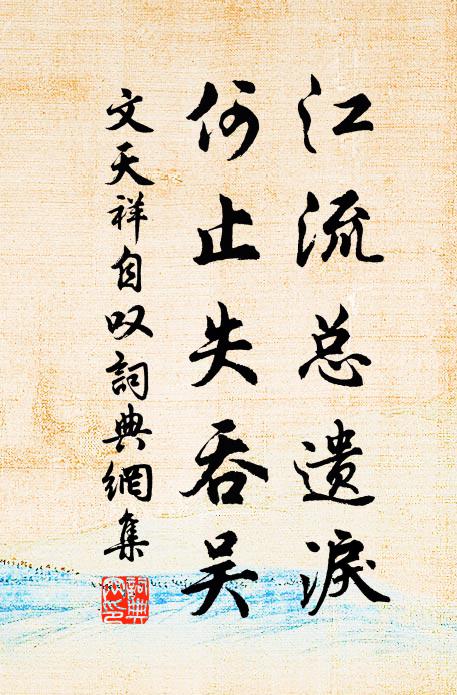 江流总遗淚
何止失吞吴
文天祥自叹詞典網集